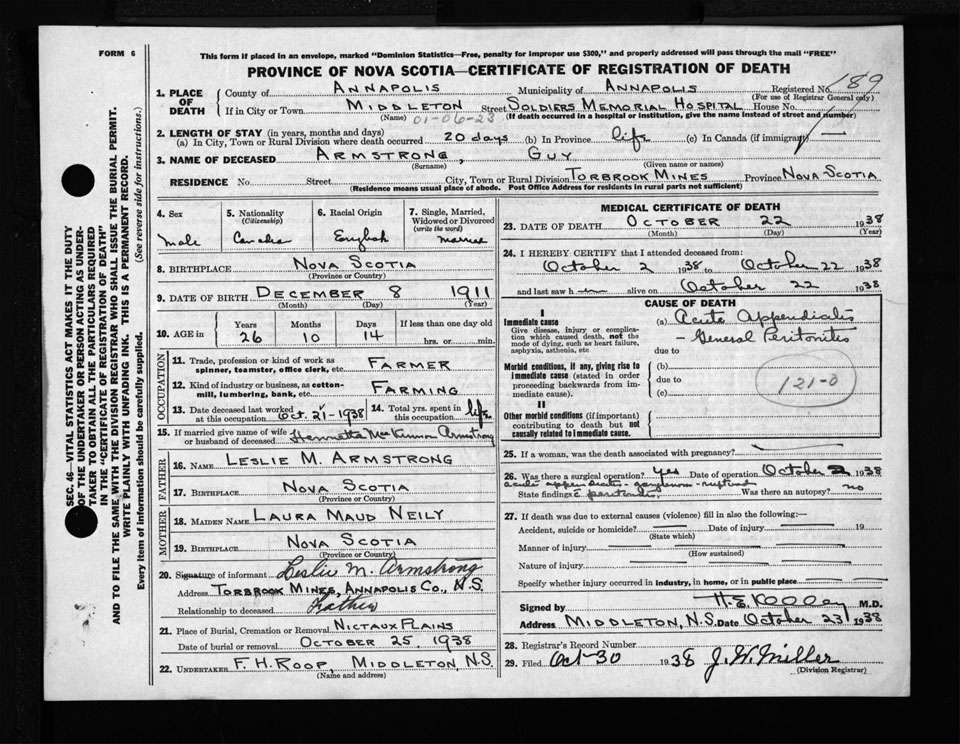 FORM 6
This form if placed in an envelope, marked "Dominion Statistics—Free, penalty for improper use $300," and properly addressed will pass through the mail "FREE"
PROVINCE OF NOVA SCOTIA—CERTIFICATE OF REGISTRATION OF DEATH
189
1. PLACE OF DEATH
County of ANNAPOLIS Municipality of ANNAPOLIS Registered No.
(For use of Registrar General only)
If in City or Town MIDDLETON Street SOLDIERS MEMORIAL HOSPITAL House No.
(Name) 01-06-23 (If death occurred in a hospital or institution, give the name instead of street and number)
2. LENGTH OF STAY (in years, months and days)
(a) In City, Town or Rural Division where death occurred 20 days (b) In Province life (c) In Canada (if immigrant) —
3. NAME OF DECEASED ARMSTRONG, GUY
(Surname) (Given name or names)
RESIDENCE No. Street City, Town or Rural Division TORBROOK MINES Province NOVA SCOTIA
(Residence means usual place of abode. Post Office Address for residents in rural parts not sufficient)
4. Sex
Male
5. Nationality
(Citizenship)
6. Racial Origin
English
7. Single, Married, Widowed or Divorced
(write the word)
8. BIRTHPLACE NOVA SCOTIA
(Province or Country)
9. DATE OF BIRTH DECEMBER 8 1911
(Month) (Day) (Year)
10. AGE in
Years Months Days If less than one day old
26 10 14 hrs. or min.
OCCUPATION
11. Trade, profession or kind of work as spinner, teamster, office clerk, etc. FARMER
12. Kind of industry or business, as cotton-mill, lumbering, bank, etc. FARMING
13. Date deceased last worked at this occupation Oct. 21-1938
14. Total yrs. spent in this occupation life
15. If married give name of wife or husband of deceased Henrietta MacKinnon Armstrong
FATHER
16. NAME LESLIE M. ARMSTRONG
17. BIRTHPLACE NOVA SCOTIA
(Province or Country)
MOTHER
18. MAIDEN NAME LAURA MAUD NEILY
19. BIRTHPLACE NOVA SCOTIA
(Province or Country)
20. Signature of informant Leslie M. Armstrong
Address TORBROOK MINES, ANNAPOLIS CO., N.S.
Relationship to deceased Father
21. Place of Burial, Cremation or Removal NICTAUX PLAINS
Date of burial or removal OCTOBER 25, 1938
22. UNDERTAKER F. H. ROOP, MIDDLETON, N.S.
(Name and address)
MEDICAL CERTIFICATE OF DEATH
23. DATE OF DEATH OCTOBER 22 1938
(Month) (Day) (Year)
24. I HEREBY CERTIFY that I attended deceased from:
October 2 1938 to October 22 1938
and last saw h alive on October 22 1938
CAUSE OF DEATH
I
Immediate cause
Give disease, injury or complication which caused death, not the mode of dying, such as heart failure, asphyxia, asthenia, etc
(a) Acute Appendicitis
– General Peritonitis
due to
Morbid conditions, if any, giving rise to immediate cause (stated in order proceeding backwards from immediate cause).
(b)
due to
(c)
121-0
II
Other morbid conditions (if important) contributing to death but not causally related to immediate cause.
25. If a woman, was the death associated with pregnancy?
26. Was there a surgical operation? yes Date of operation October 2 1938
State findings Was there an autopsy? no
27. If death was due to external causes (violence) fill in also the following:—
Accident, suicide or homicide? Date of injury 19
(State which)
Manner of injury
(How sustained)
Nature of injury
Specify whether injury occurred in industry, in home, or in public place
Signed by M.D.
Address MIDDLETON, N.S. Date October 23 1938
28. Registrar's Record Number
29. Filed Oct-30 1938 J. W. Miller
(Division Registrar)
SEC. 46—VITAL STATISTICS ACT MAKES IT THE DUTY
OF THE UNDERTAKER OR PERSON ACTING AS UNDER-
TAKER TO OBTAIN ALL THE PARTICULARS REQUIRED
IN THE "CERTIFICATE OF REGISTRATION OF DEATH"
AND TO FILE THE SAME WITH THE DIVISION REGISTRAR WHO SHALL ISSUE THE BURIAL PERMIT.
WRITE PLAINLY WITH UNFADING INK. THIS IS A PERMANENT RECORD.
Every item of information should be carefully supplied. (See reverse side for instructions.)